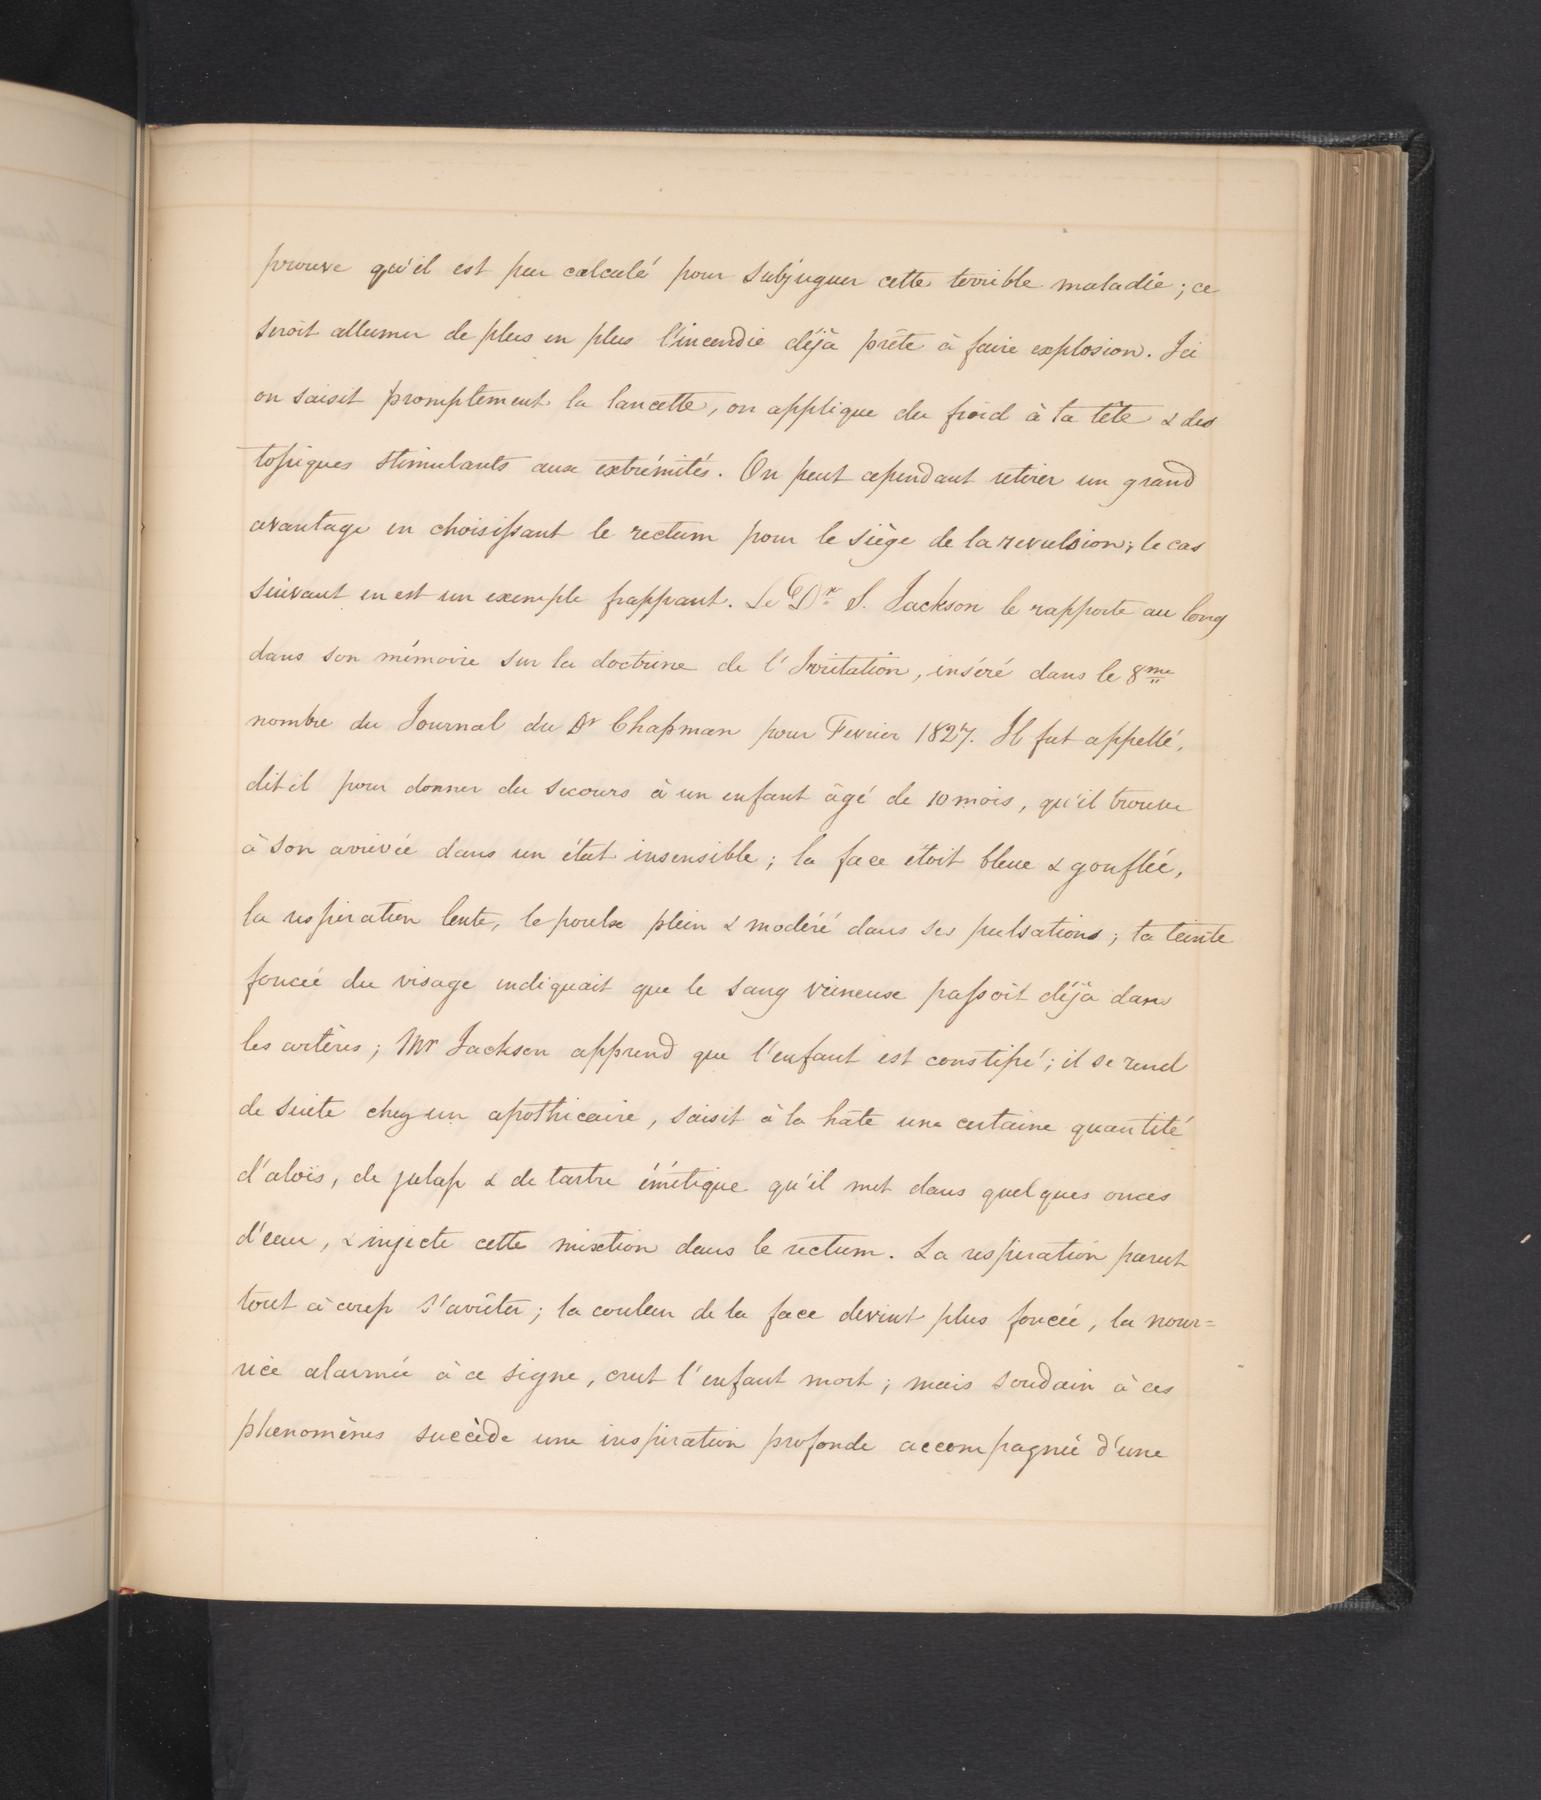 prouve qu'il est peu calculé pour subjuguer cette terrible maladie; ce
seroit allumer de plus en plus l'incendie déjà prête à faire explosion. Ici
on saisit promptement la lancette, on applique du froid à la tête & des
topiques stimulants aux extrémités. On peut cependant retirer un grand
avantage en choisissant le rectum pour le siège de la revulsion; le cas
suivant en est un exemple frappant. Le Dr S. Jackson le rapporte au long
dans son mémoire sur la doctrine de l'Irritation, inséré dans le 8me
nombre du Journal du Dr Chapman pour Fevrier 1827. Il fut appellé,
dit il pour donner du secours à un enfant âgé de 10 mois, qu'il trouve
à son arrivée dans un état insensible; la face étoit bleue & gonflée,
la respiration lente, le poulx plein & modéré dans ses pulsations; la teinte
foncée du visage indiquait que le sang veineux passoit déjà dans
les artères; Mr Jackson apprend que l'enfant est constipé; il se rend
de suite chez un apothicaire, saisit à la hâte une certaine quantité
d'aloës, de jalap & de tartre émétique qu'il met dans quelques onces
d'eau, & injecte cette mixtion dans le rectum. La respiration parut
tout à coup s'arrêter; la couleur de la face devint plus foncée, la nour=
rice alarmée à ce signe, crut l'enfant mort; mais soudain à ces
phenomènes succède une inspiration profonde accompagnée d'une